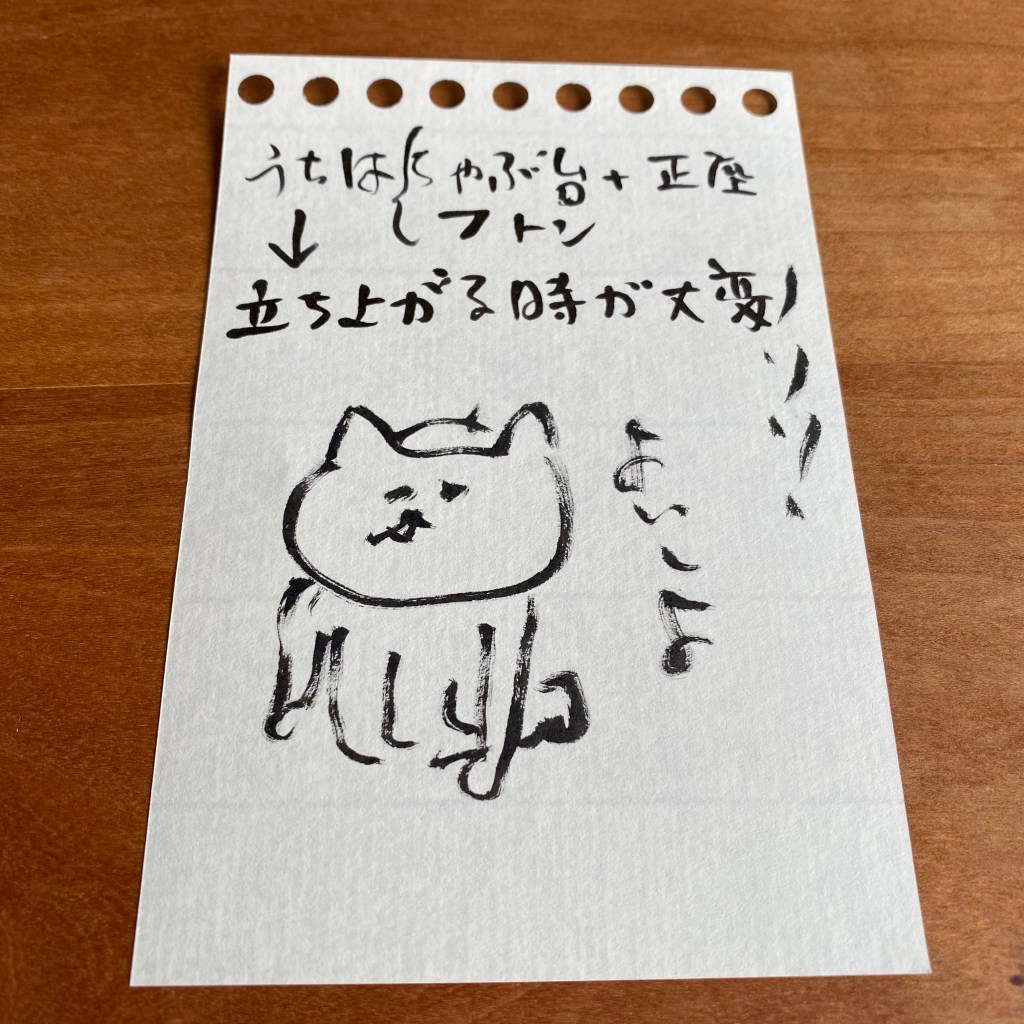 うちは ちゃぶ台+正座
フトン
↓
立ち上がる時が大変
よいしょ